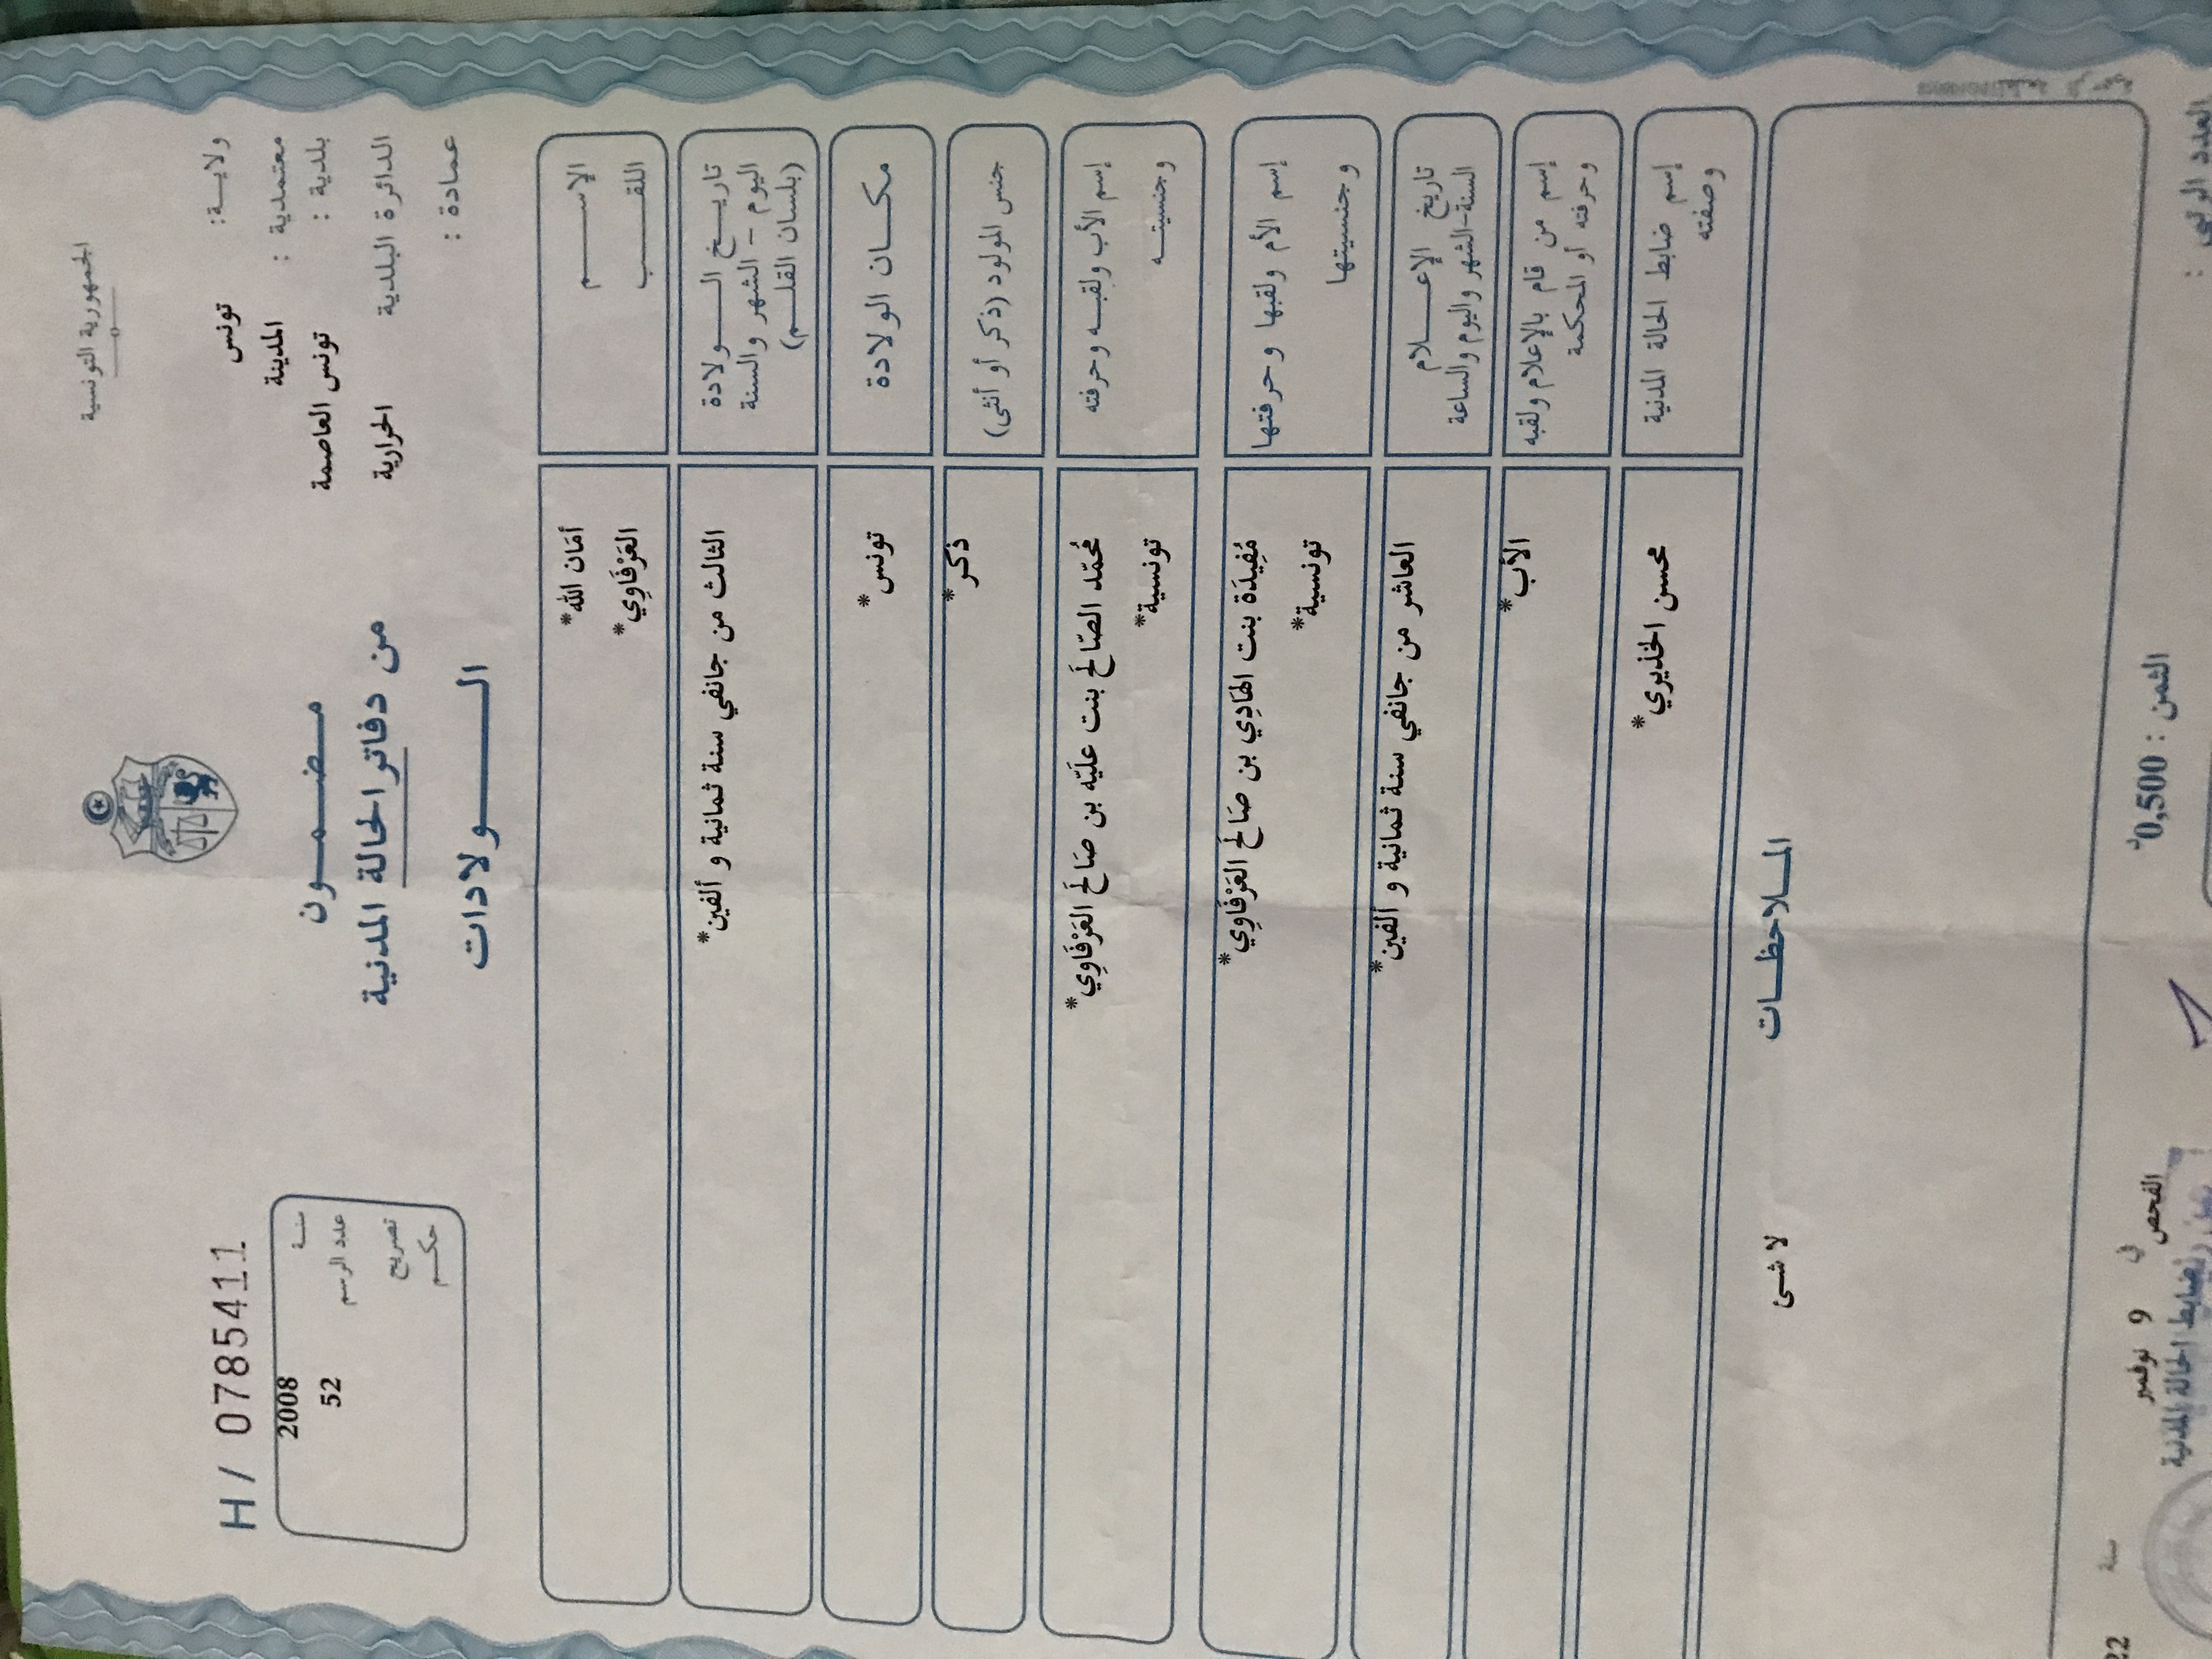 الجمهورية التونسية
ولاية: تونس
معتمدية : المدينة
بلدية : تونس العاصمة
الدائرة البلدية الحرارية
عمادة :
مضمون
من دفاتر الحالة المدنية
الولادات
H / 0785411
سنة 2008
عدد الرسم 52
تصريح
حكم
الإسم أمَان الله*
اللقب العَرْفَاوِي*
تاريخ الولادة
اليوم - الشهر والسنة
(بلسان القلم)
الثالث من جانفي سنة ثمانية و ألفين*
مكان الولادة تونس*
جنس المولود (ذكر أو أنثى) ذكر*
إسم الأب ولقبه وحرفته محُمّد الصّالح بنت عليّه بن صَالح العَرْفَاوِي*
وجنسيته تونسية*
إسم الأم ولقبها وحرفتها مُفِيدَة بنت الهَادِي بن صَالح العَرْفَاوِي*
وجنسيتها تونسية*
تاريخ الإعلام
السنة-الشهر واليوم والساعة
العاشر من جانفي سنة ثمانية و ألفين*
إسم من قام بالإعلام ولقبه
وحرفته أو المحكمة
الأب*
إسم ضابط الحالة المدنية
وصفته
محسن الخذيري*
الملاحظات
لا شئ
الثمن : 0,500د
الفحص في 9 نوفمبر سنة 22
ضابط الحالة المدنية